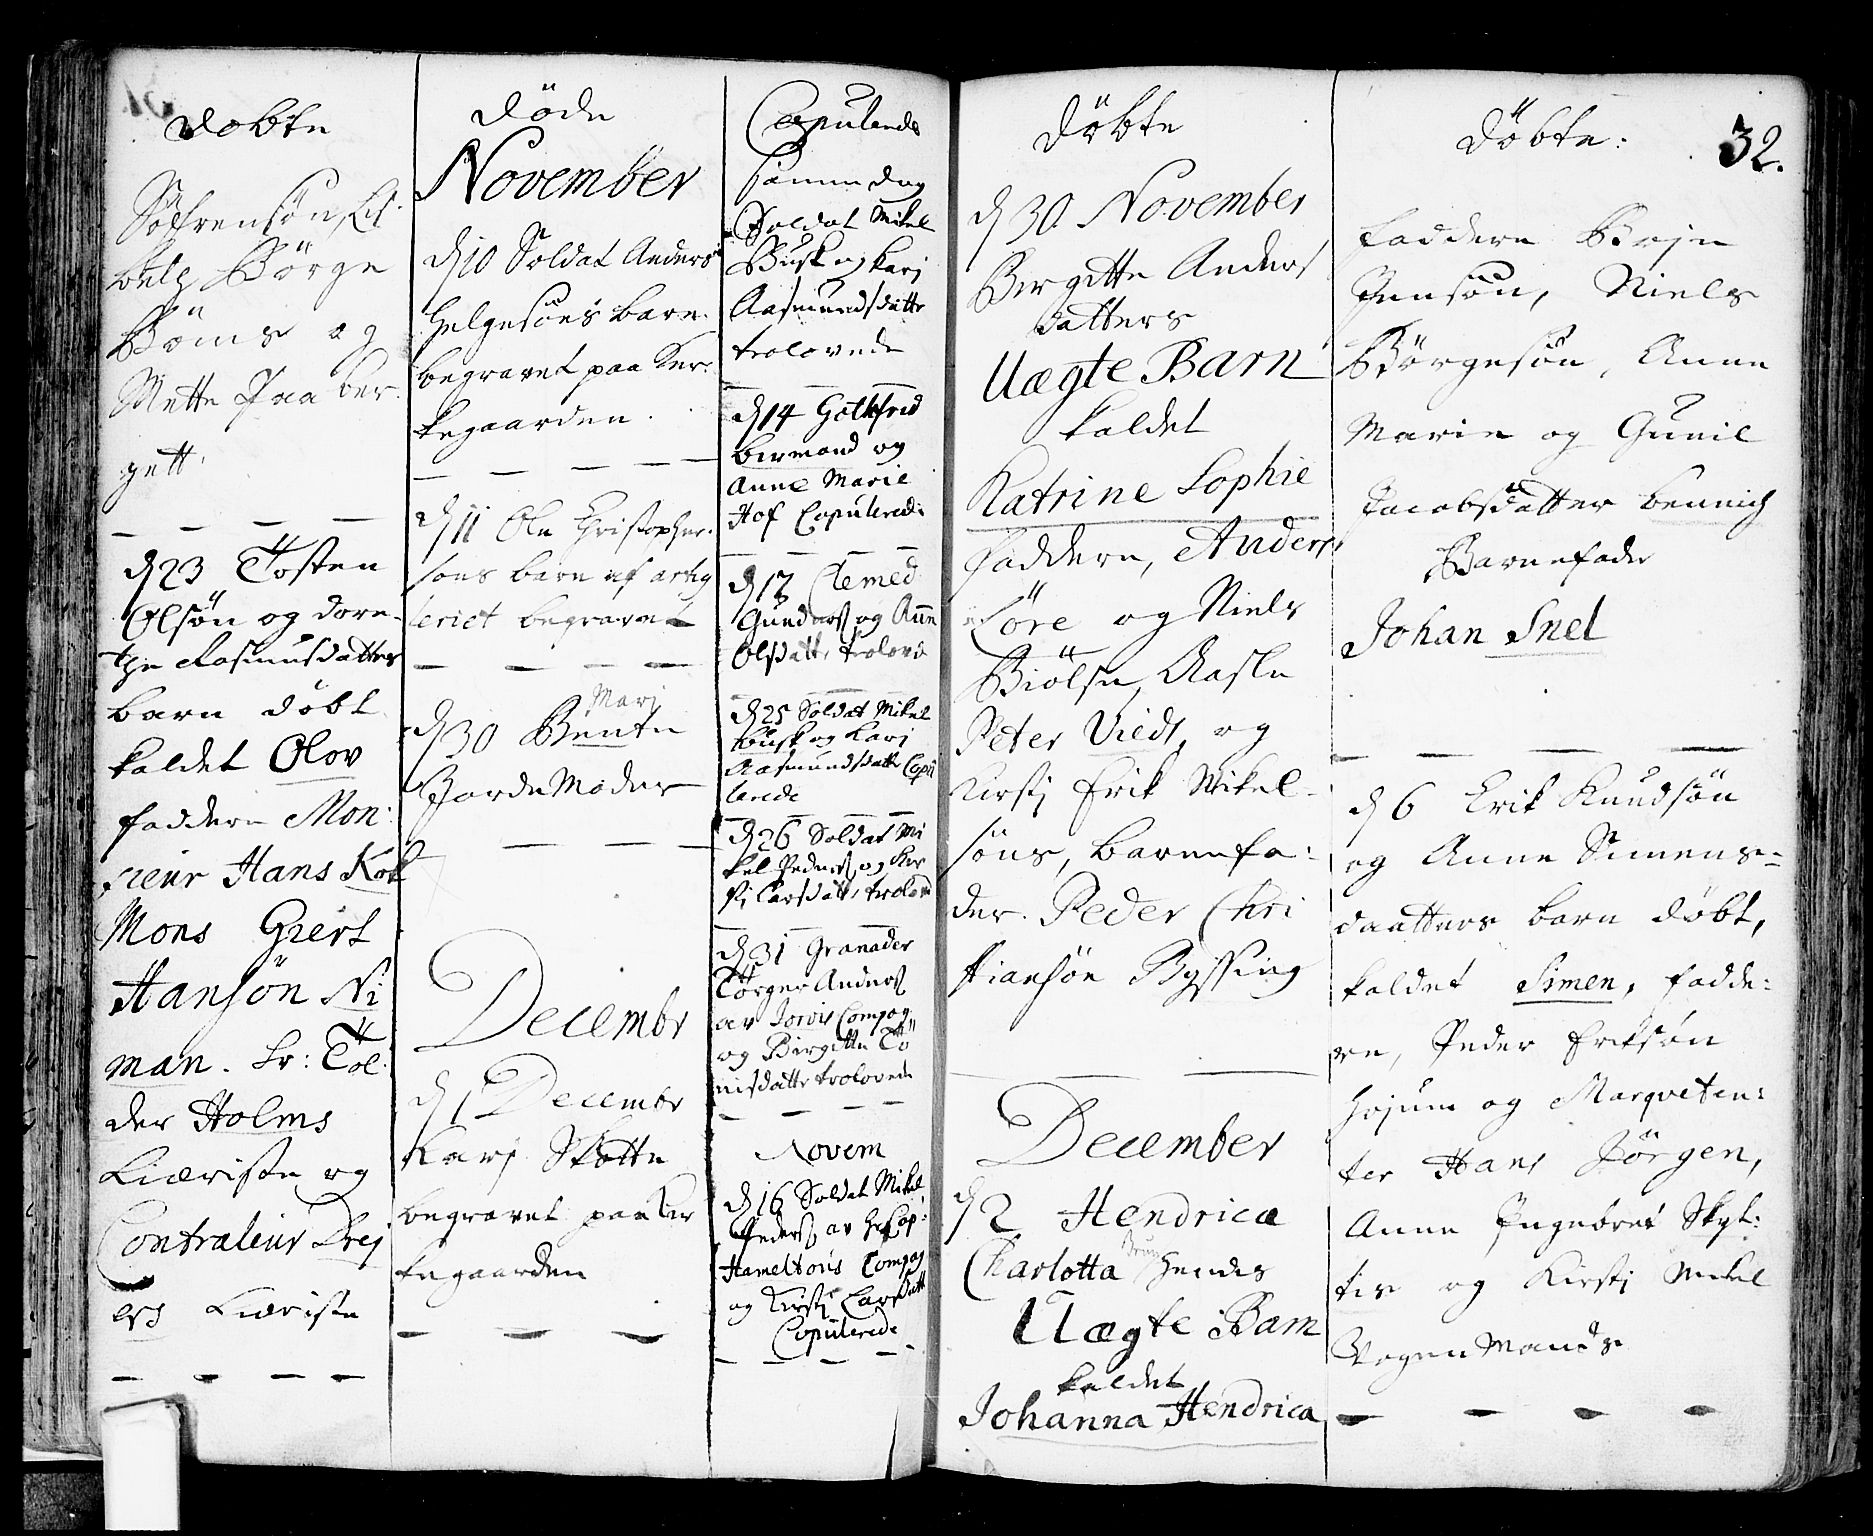 Döbte
Söfrensön, El.
belz Börge
Böms og
Mette Paa ber
gett.
d 23 Tosten
Olsön og Dore-
the Rasmusdatters
barn döbt
kaldet Olov
faddere Mon:
sieur Hans Kok
Mons Giert
Hansön Ni
man. Sr: Tol
der Holms
Kiæriste og
Contraleur Drej
ers Kiæriste
Döde
November
d 10 Soldat Anders
Helgesöns barn
begravet paa Ker:
kegaarden.
d 11 Ole Christopher
sons barn af artig
leriet begravet
Mari
d 30 Bente
Jorde Moder
Decembr
d 1 Decembr
Karj Skötte
begravet paa Ker
kegaarden
Copulerede
samme dag
Soldat Mikel
Busk og Karj
Aasmundsdatte
trolovede
d 14 Gothfred
bermand og
Anne Marie
Hof Copulered:
d 17 Clemed
Gunders og Ann
Olsdatte trolovd
d 25 Soldat Mikel
Busk og Karj
Aasmundsdatte Copu
lerede
d 26 Soldat Mi
kel Peders og Ker
sti Larsdatt: trolovd
d 31 Granader
Törger Anders
av Compag
og Birgitte Tö
nisdatte trolovede
Novem
d 16 Soldat Mikel
Peders av H Cap:
Hameltons Compag
og Kirstj Larsdatt
Copulerede
Döbte
d 30 November
Birgitte Anders
datters
Uægte Barn
kaldet
Katrine Sophie
Faddere, Anders
Töre og Niels
Biölsen, Aasle
Peter Viedt, og
Kirstj Erik Mikel-
söns, barnefa:
der. Peder Chri
stiansön Byssing
December
d 2 Hendrica
Brun
Charlotta hendes
Uægte Barn
kaldet
Johanna Hendrica
Döbte: 32.
faddere Börje
Jensön, Niels
Börgesön, Anne
Marie og Gunil
Jacobsdatter bennich
Barnefader
Johan Snel
d 6 Erik Knudsön
og Anne Simens=
daatters barn döbt,
kaldet Simen, fadde:
re, Peder Eriksön
Hojum og Marqveten:
ter Hans Jörgen,
Anne Ingebret Skyt:
tis og Kirstj Mikel
Vogenmands